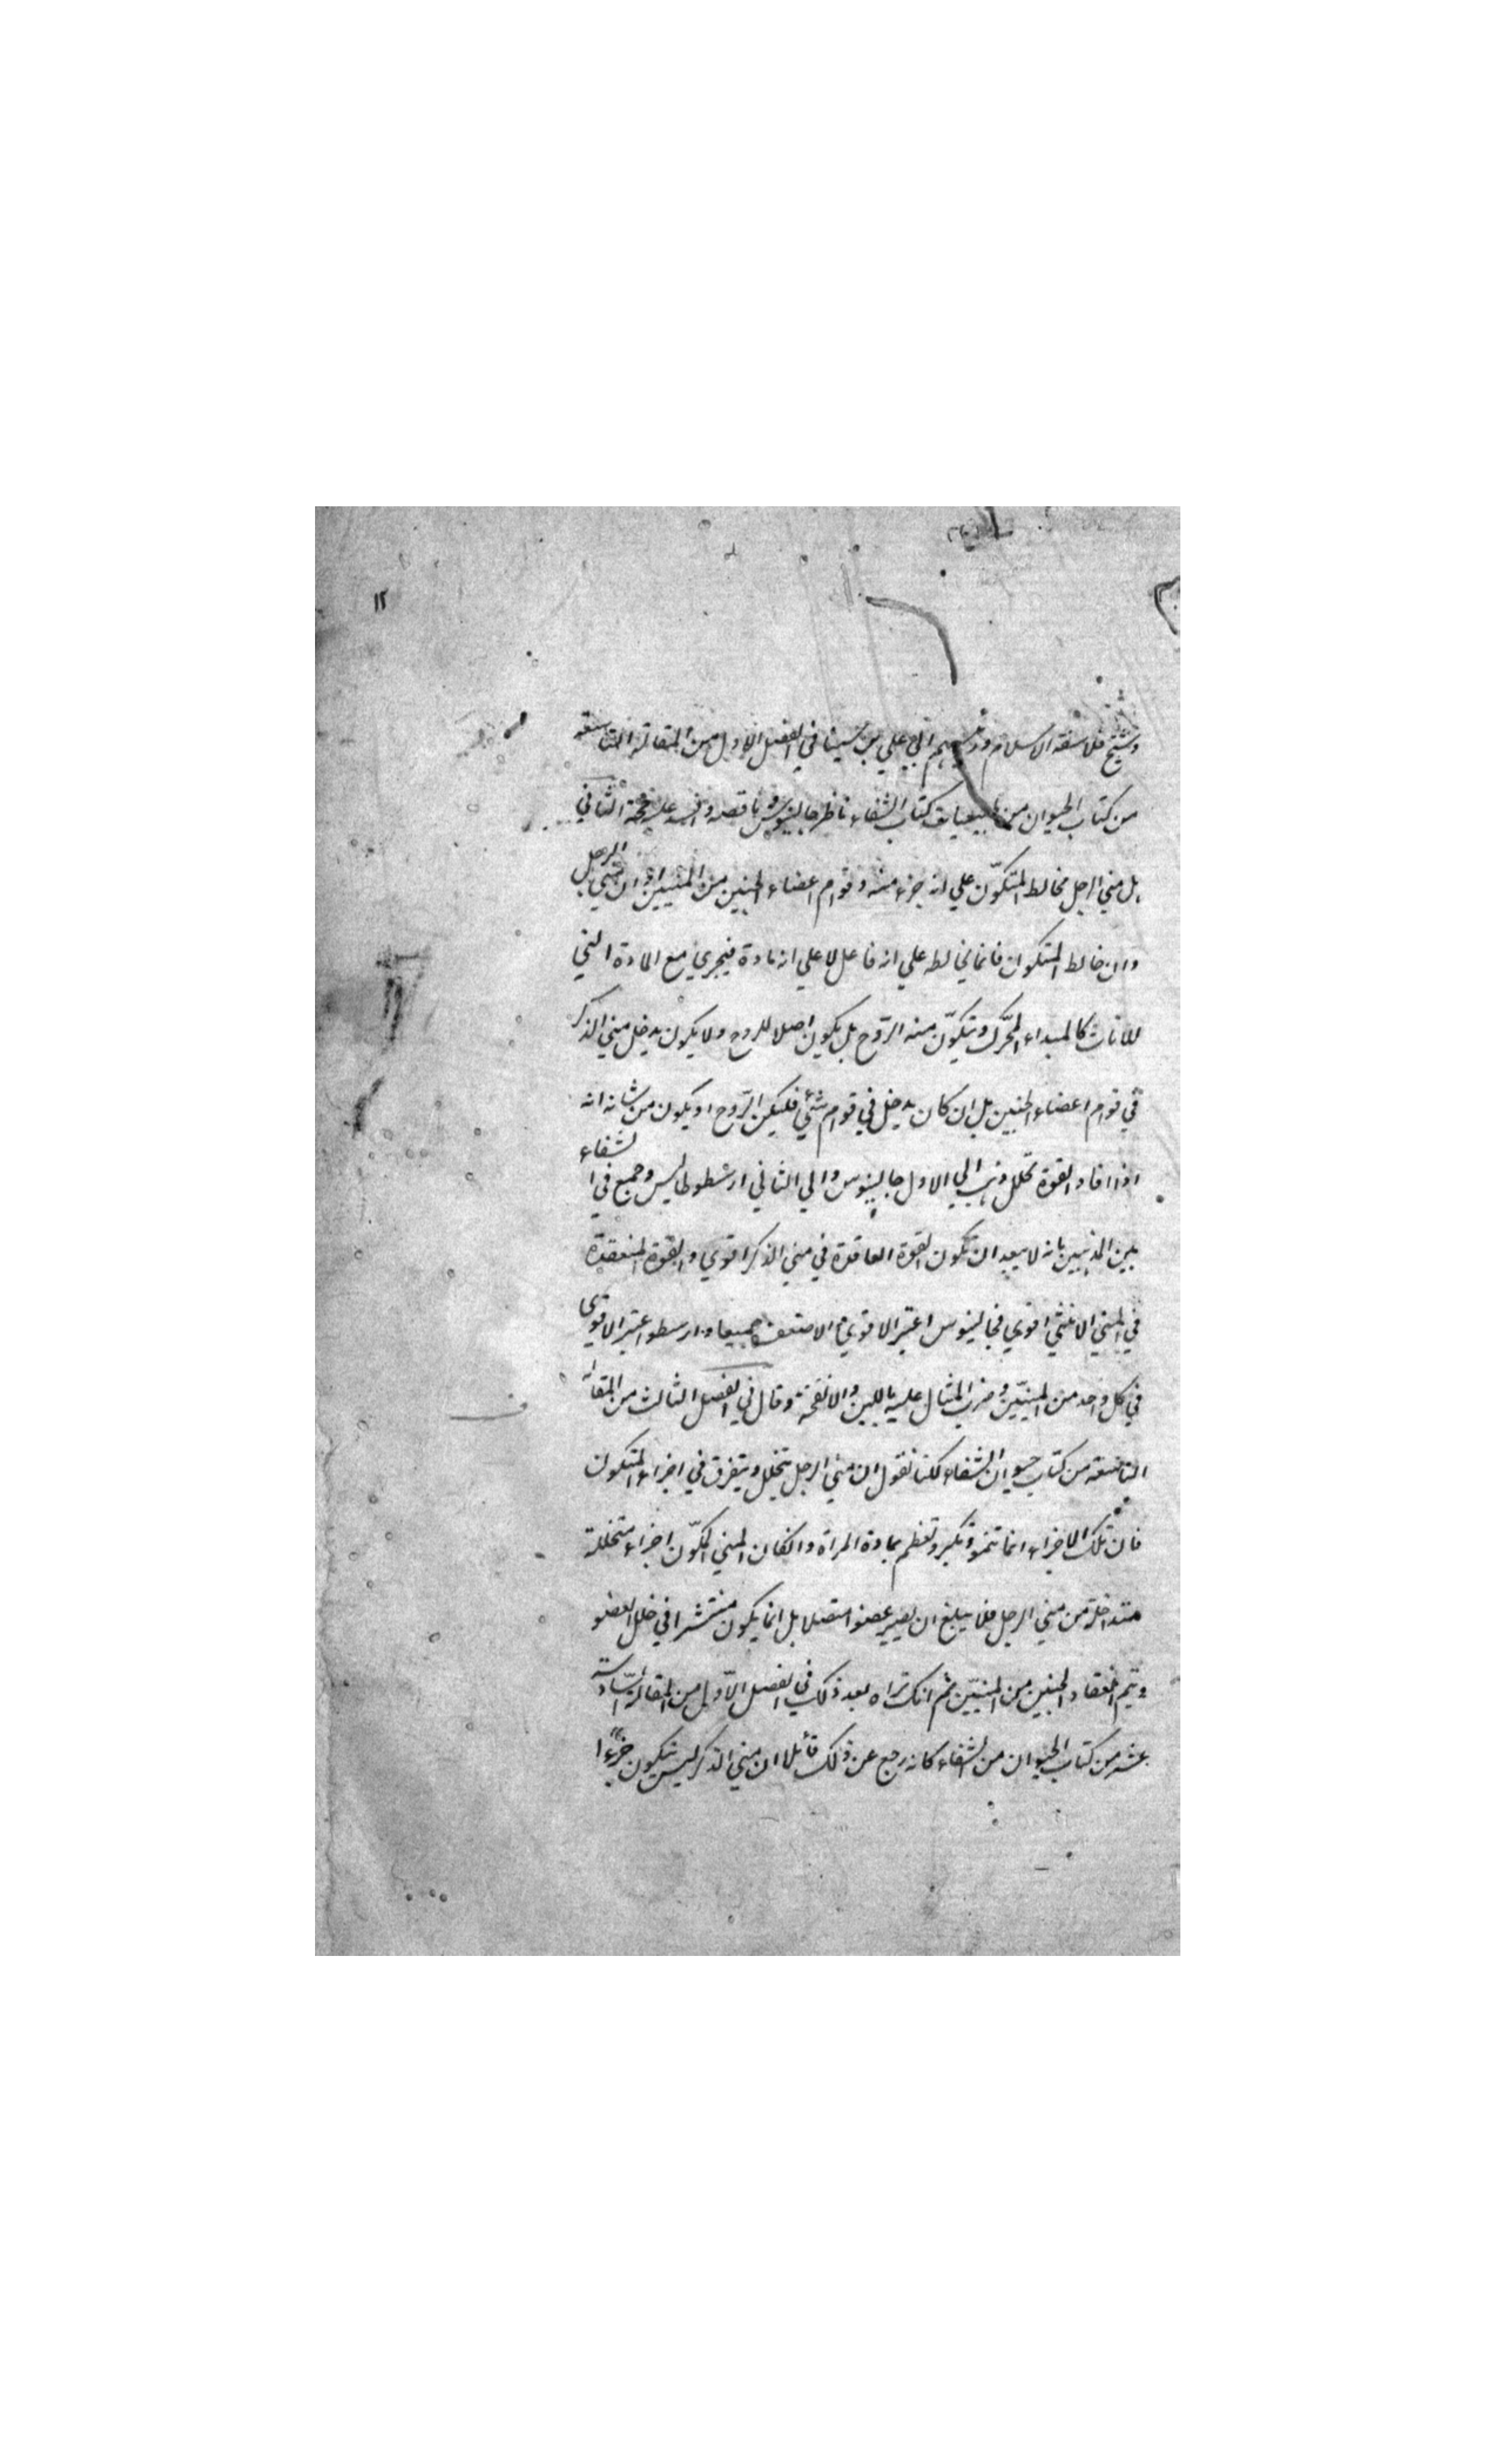 ١٢
وشيخ فلاسفة الاسلام ورئيسهم ابي علي بن سينا في الفصل الاول من المقالة التاسعة
من كتاب الحيوان من طبيعيات كتاب الشفاء ناظر جالينوس وناقصه الثاني
بل مني الرجل مخالط المتكوّن علي انه جزء منه وقوام اعضاء الجنين من المنيين او ان مني الرجل
وان خالط المتكوان فانما يخالطه علي انه فاعل لا علي انه مادة فيجري مع المادة التي
للاناث كالمبداء المحرّك ويتكوّن منه الرّوح بل يكون اصلا للروح ولا يكون يدخل مني الذكر
في قوام اعضاء الجنين بل ان كان يدخل في قوام شئ فليكن الرّوح او يكون من شانه انه
اذا افاد القوة تحلل وذهب الي الاول جالينوس والي الثاني ارسطوطاليس وجمع في الشفاء
بين المذهبين بانه لا يبعد ان تكون القوة العاقدة في مني الذكر اقوي والقوة المنعقدة
في المني الانثي اقوي فجالينوس اعتبر الاقوي والاضعف جميعا وارسطو اعتبر الاقوي
في كل واحد من المنيّين وضرب المثال عليه باللبن والانفحة وقال في الفصل الثالث من المقالة
التاسعة من كتاب حيوان الشفاء لكنا نقول ان مني الرجل يتحلل ويتفرق في اجزاء المتكون
فان تلك الاجزاء انما تنمو وتكبر وتعظم بمادة المراة وانكان المني المكوّن اجزاء متخللة
متداخلة من مني الرجل فلا يبلغ ان يصير عضوا متصلا بل انما يكون منتشرا في خلل العضو
ويتم انعقاد الجنين من المنيّين ثم انك تراه بعد ذلك في الفصل الاوّل من المقالة السّادسة
عشر من كتاب الحيوان من الشفاء كانه رجع عن ذلك قائلا ان مني الذكر ليس يتكون جزءا